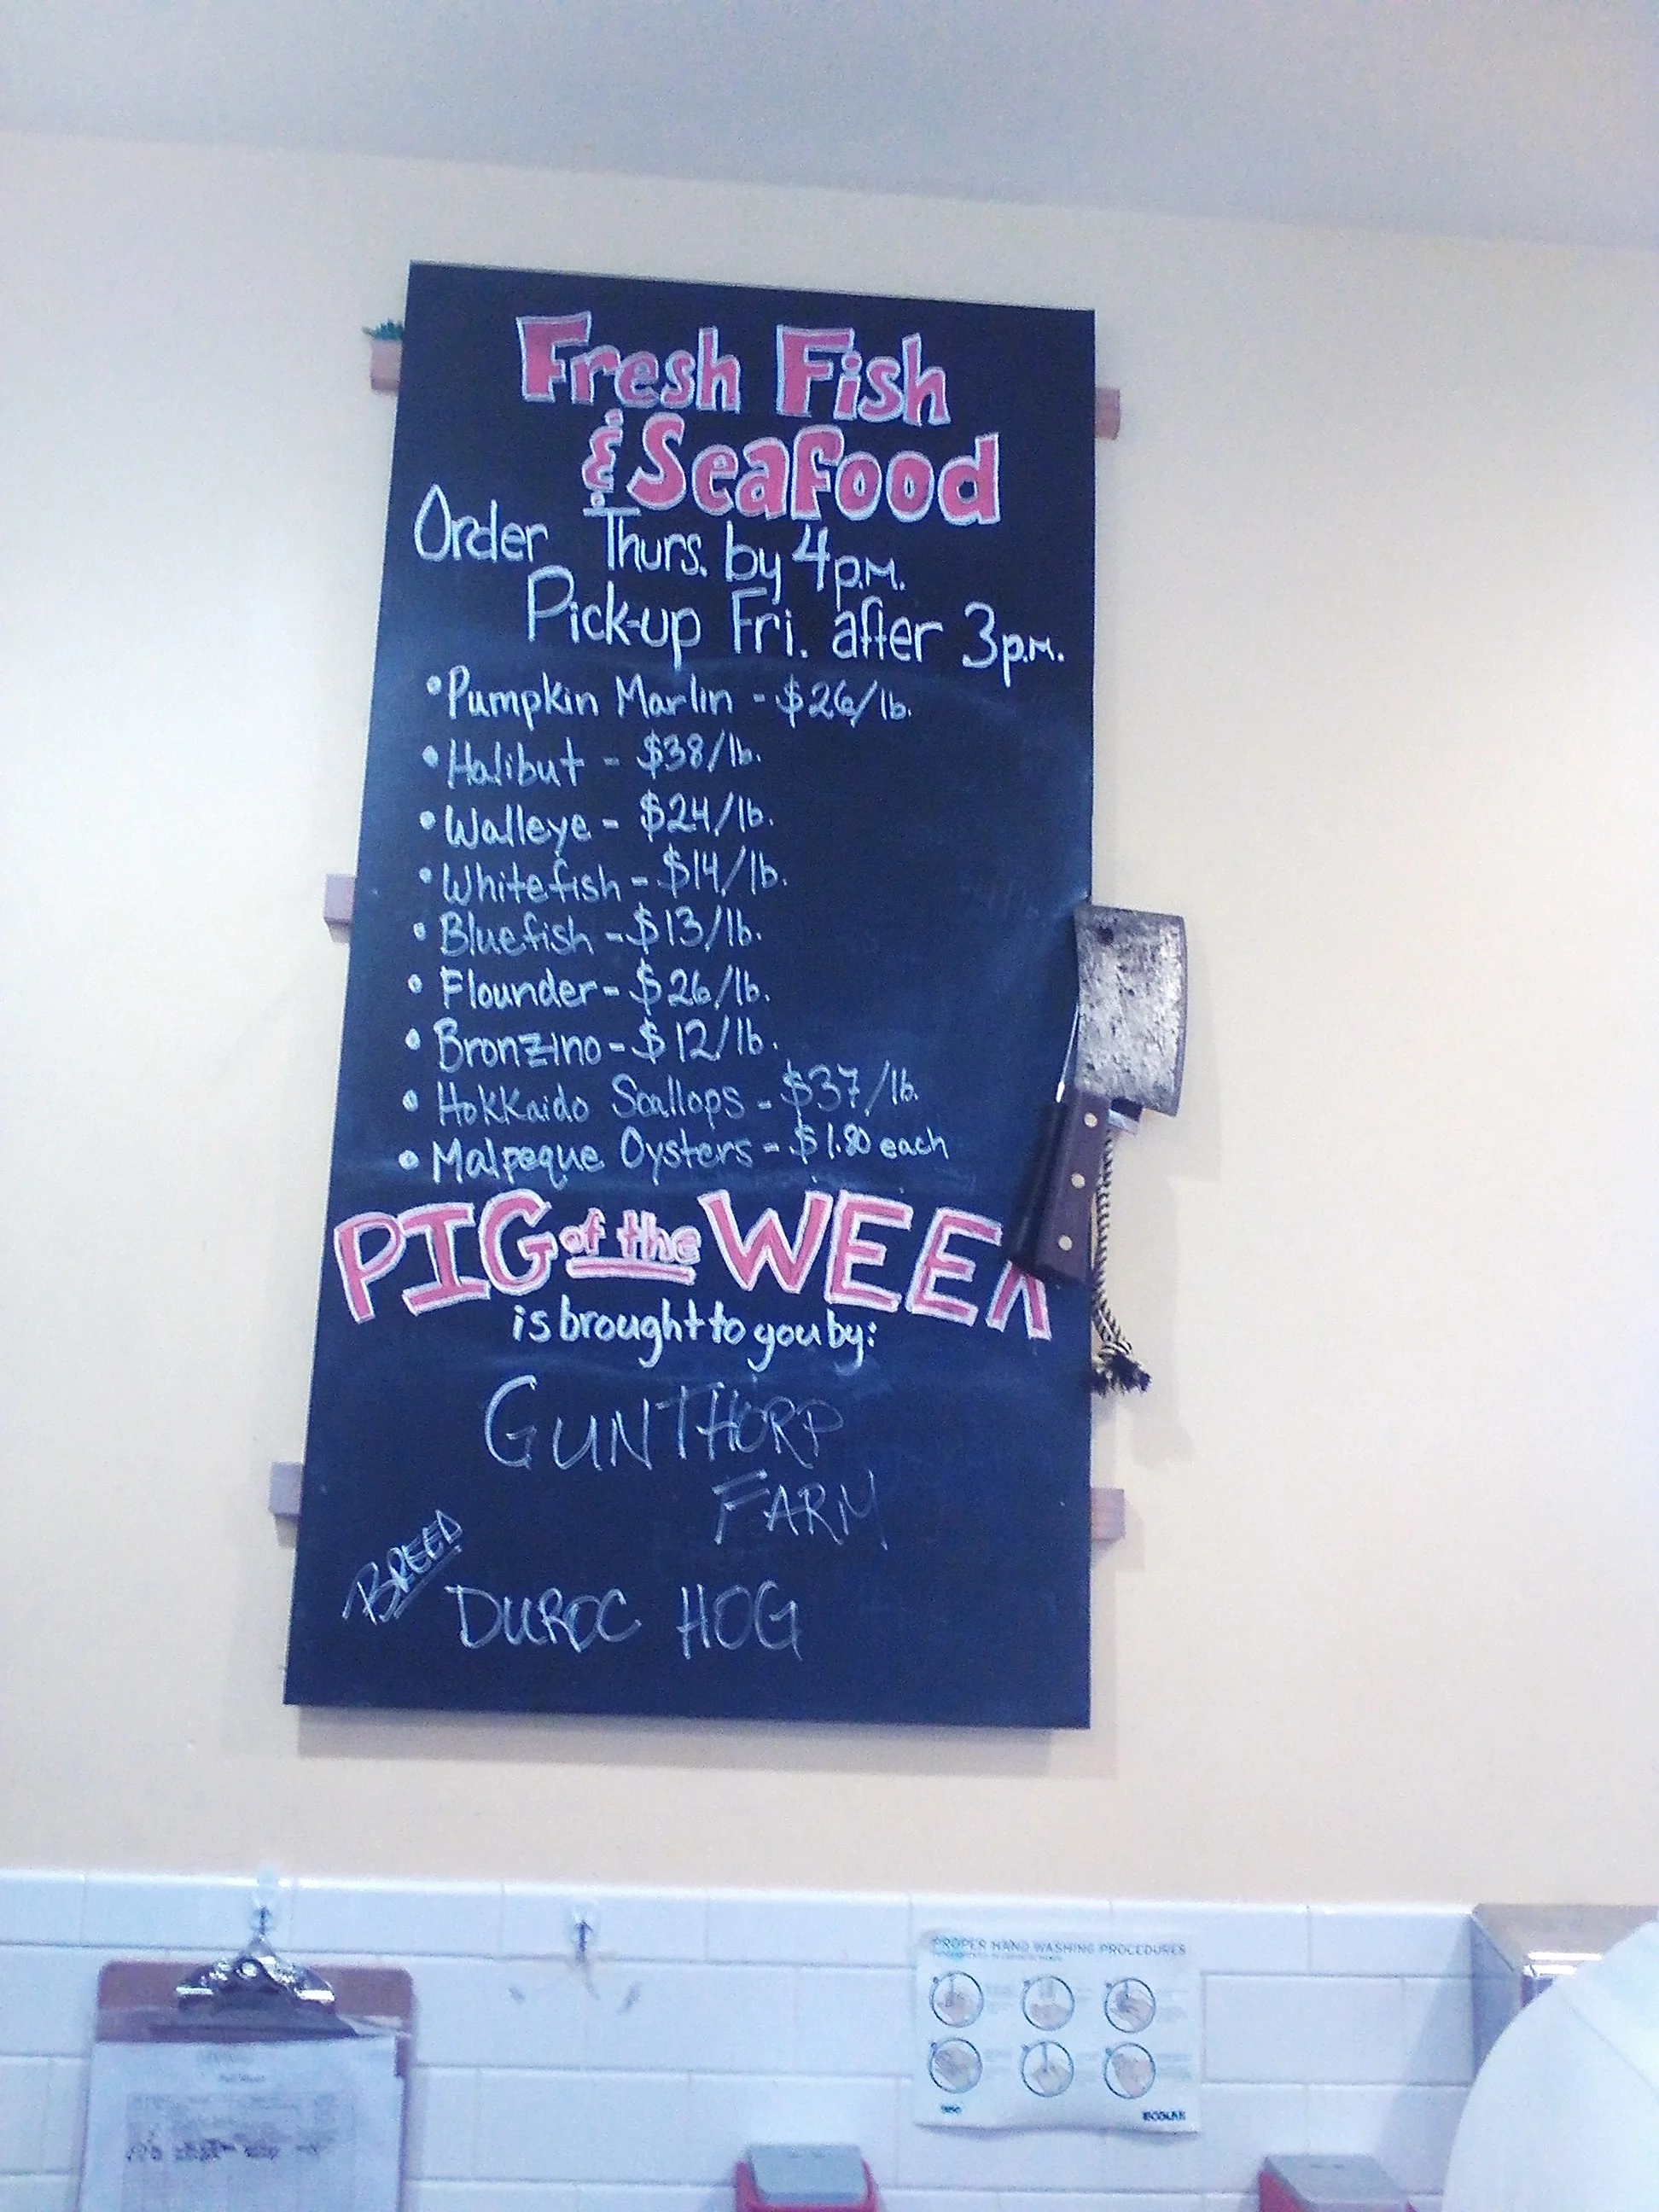 Fresh Fish
& Seafood
Order Thurs. by 4p.m.
Pick-up Fri. after 3p.m.
• Pumpkin Marlin - $26/lb.
• Halibut - $38/lb.
• Walleye - $24/lb.
• Whitefish - $14/lb.
• Bluefish - $13/lb.
• Flounder - $26/lb.
• Bronzino - $12/lb.
• Hokkaido Scallops - $37/lb.
• Malpeque Oysters - $1.80 each
PIG of the WEEK
is brought to you by:
GUNTHORP
FARM
BREED
DUROC HOG
PROPER HAND WASHING PROCEDURES
ECOLAB